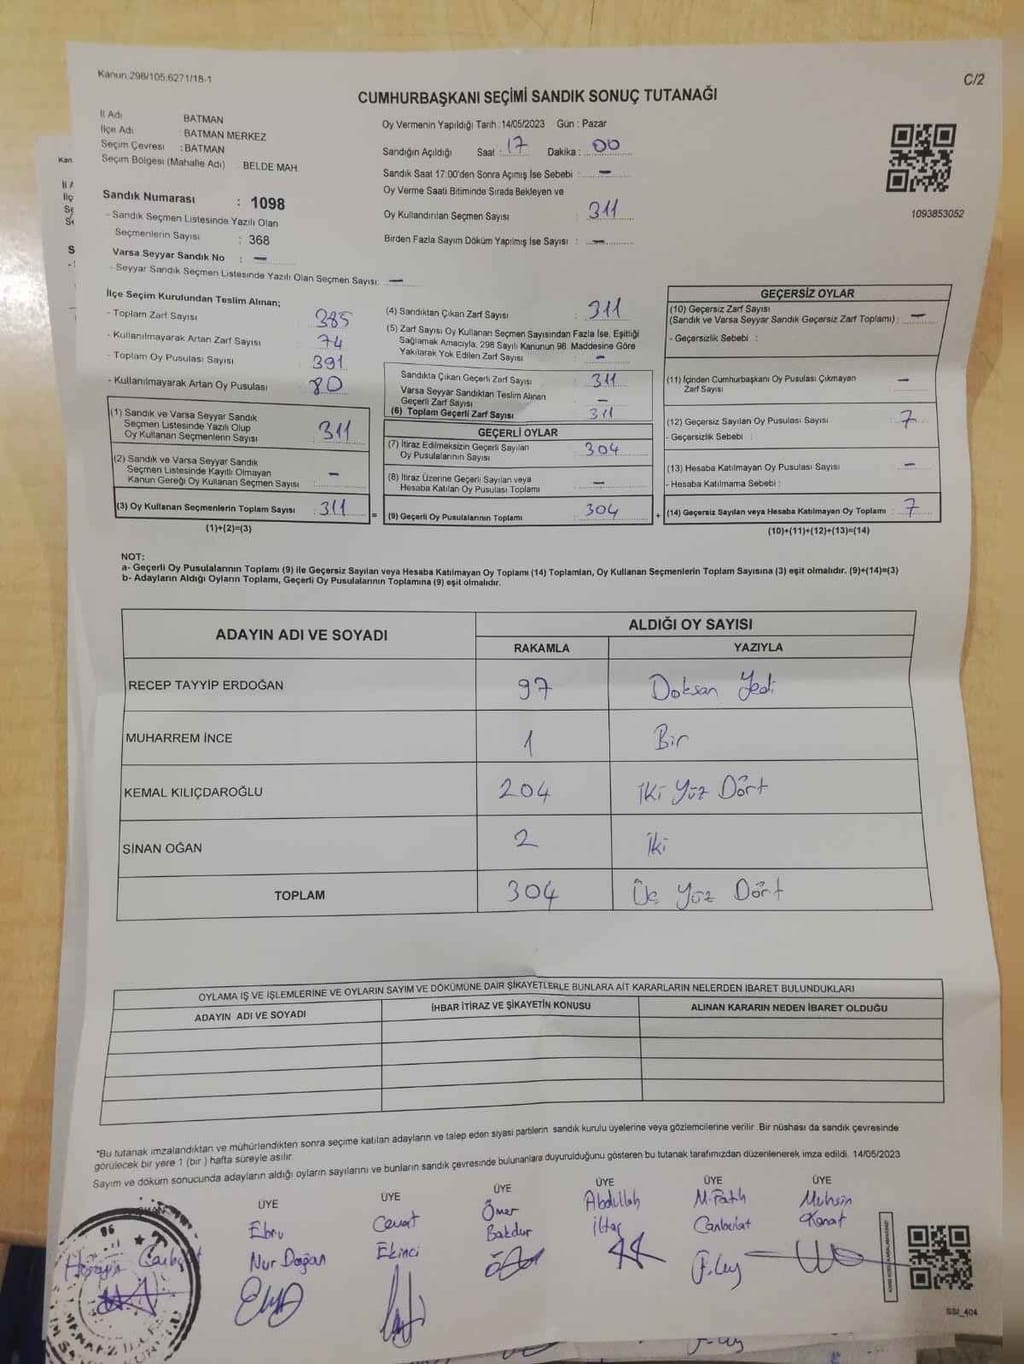 Kanun.298/105;6271/18-1
C/2
CUMHURBAŞKANI SEÇİMİ SANDIK SONUÇ TUTANAĞI
İl Adı BATMAN
İlçe Adı BATMAN MERKEZ
Seçim Çevresi :BATMAN
Seçim Bölgesi (Mahalle Adı) BELDE MAH.
Sandık Numarası : 1098
- Sandık Seçmen Listesinde Yazılı Olan
Seçmenlerin Sayısı : 368
Varsa Seyyar Sandık No : –
- Seyyar Sandık Seçmen Listesinde Yazılı Olan Seçmen Sayısı: –
Oy Vermenin Yapıldığı Tarih :14/05/2023 Gün : Pazar
Sandığın Açıldığı Saat : 17 Dakika : 00
Sandık Saat 17:00'den Sonra Açımış İse Sebebi : –
Oy Verme Saati Bitiminde Sırada Bekleyen ve
Oy Kullandırılan Seçmen Sayısı 311
Birden Fazla Sayım Döküm Yapılmış İse Sayısı : –
1093853052
İlçe Seçim Kurulundan Teslim Alınan;
- Toplam Zarf Sayısı 385
- Kullanılmayarak Artan Zarf Sayısı 74
- Toplam Oy Pusulası Sayısı 391
- Kullanılmayarak Artan Oy Pusulası 80
(1) Sandık ve Varsa Seyyar Sandık
Seçmen Listesinde Yazılı Olup
Oy Kullanan Seçmenlerin Sayısı 311
(2) Sandık ve Varsa Seyyar Sandık
Seçmen Listesinde Kayıtlı Olmayan
Kanun Gereği Oy Kullanan Seçmen Sayısı –
(3) Oy Kullanan Seçmenlerin Toplam Sayısı 311
(1)+(2)=(3)
(4) Sandıktan Çıkan Zarf Sayısı 311
(5) Zarf Sayısı Oy Kullanan Seçmen Sayısından Fazla İse, Eşitliği
Sağlamak Amacıyla; 298 Sayılı Kanunun 98. Maddesine Göre
Yakılarak Yok Edilen Zarf Sayısı –
Sandıkta Çıkan Geçerli Zarf Sayısı 311
Varsa Seyyar Sandıktan Teslim Alınan
Geçerli Zarf Sayısı –
(6) Toplam Geçerli Zarf Sayısı 311
GEÇERLİ OYLAR
(7) İtiraz Edilmeksizin Geçerli Sayılan
Oy Pusulalarının Sayısı 304
(8) İtiraz Üzerine Geçerli Sayılan veya
Hesaba Katılan Oy Pusulası Toplamı –
= (9) Geçerli Oy Pusulalarının Toplamı 304
GEÇERSİZ OYLAR
(10) Geçersiz Zarf Sayısı
(Sandık ve Varsa Seyyar Sandık Geçersiz Zarf Toplamı) : –
- Geçersizlik Sebebi :
(11) İçinden Cumhurbaşkanı Oy Pusulası Çıkmayan
Zarf Sayısı –
(12) Geçersiz Sayılan Oy Pusulası Sayısı 7
- Geçersizlik Sebebi :
(13) Hesaba Katılmayan Oy Pusulası Sayısı –
- Hesaba Katılmama Sebebi :
+ (14) Geçersiz Sayılan veya Hesaba Katılmayan Oy Toplamı 7
(10)+(11)+(12)+(13)=(14)
NOT:
a- Geçerli Oy Pusulalarının Toplamı (9) ile Geçersiz Sayılan veya Hesaba Katılmayan Oy Toplamı (14) Toplamları, Oy Kullanan Seçmenlerin Toplam Sayısına (3) eşit olmalıdır. (9)+(14)=(3)
b- Adayların Aldığı Oyların Toplamı, Geçerli Oy Pusulalarının Toplamına (9) eşit olmalıdır.
ADAYIN ADI VE SOYADI ALDIĞI OY SAYISI
RAKAMLA YAZIYLA
RECEP TAYYİP ERDOĞAN 97 Doksan Yedi
MUHARREM İNCE 1 Bir
KEMAL KILIÇDAROĞLU 204 İki Yüz Dört
SİNAN OĞAN 2 İki
TOPLAM 304 Üç Yüz Dört
OYLAMA İŞ VE İŞLEMLERİNE VE OYLARIN SAYIM VE DÖKÜMÜNE DAİR ŞİKAYETLERLE BUNLARA AİT KARARLARIN NELERDEN İBARET BULUNDUKLARI
ADAYIN ADI VE SOYADI İHBAR İTİRAZ VE ŞİKAYETİN KONUSU ALINAN KARARIN NEDEN İBARET OLDUĞU
*Bu tutanak imzalandıktan ve mühürlendikten sonra seçime katılan adayların ve talep eden siyasi partilerin sandık kurulu üyelerine veya gözlemcilerine verilir. Bir nüshası da sandık çevresinde
görülecek bir yere 1 (bir) hafta süreyle asılır.
Sayım ve döküm sonucunda adayların aldığı oyların sayılarını ve bunların sandık çevresinde bulunanlara duyurulduğunu gösteren bu tutanak tarafımızdan düzenlenerek imza edildi. 14/05/2023
ÜYE ÜYE ÜYE ÜYE ÜYE ÜYE
Ebru Nur Doğan
Cevat Ekinci
Ömer Bakdur
Abdullah İltaş
M.Fatih Canbulat
Muhsin Kanat
SSI_404